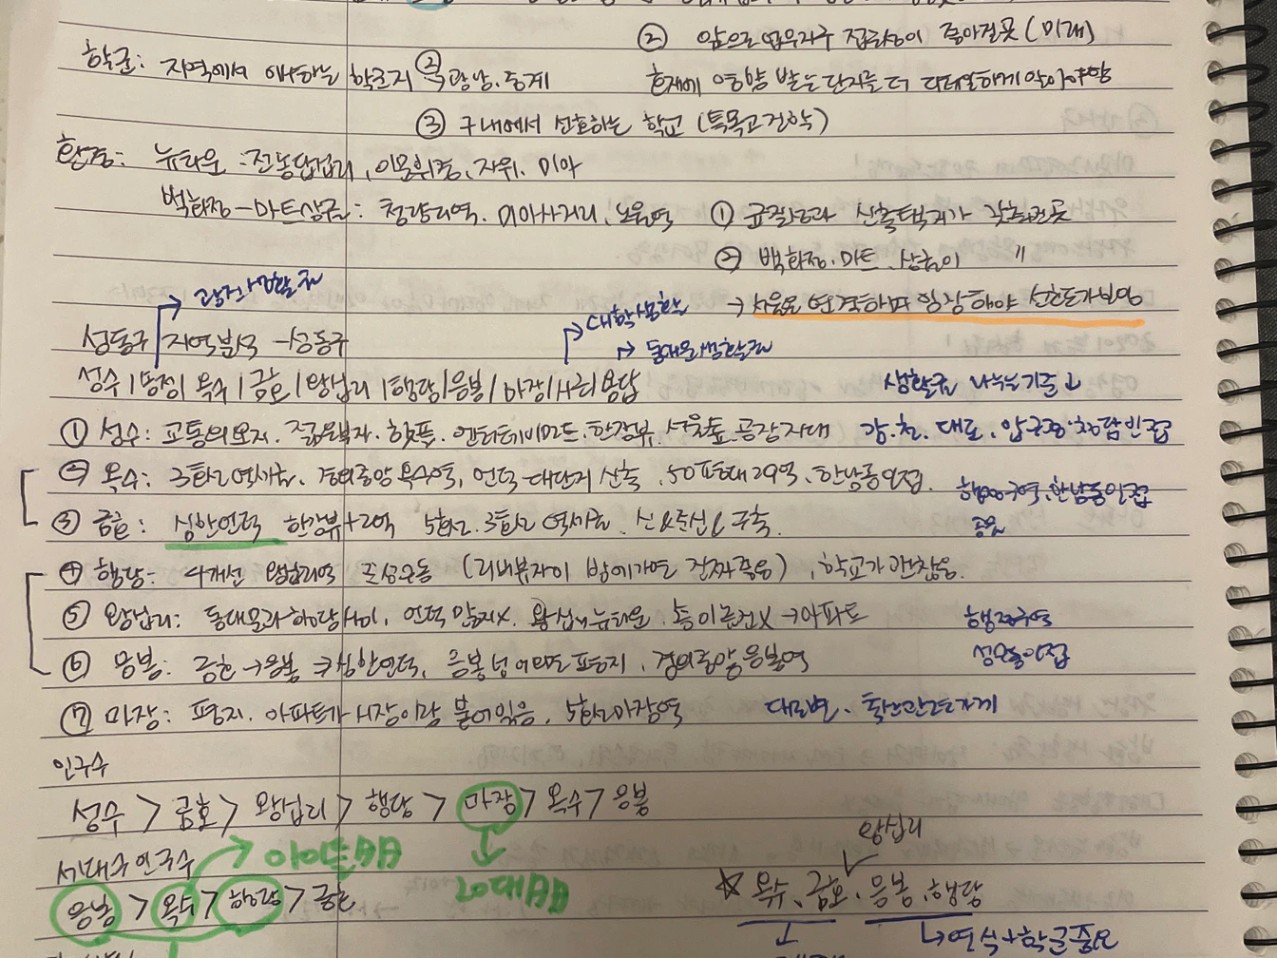 ② 앞으로 업무지구 접근성이 좋아질곳 (미래)
학군: 지역에서 학군지 ② 광남, 중계
현재에 영향 받는 단지를 더 디테일하게 알아야함
③ 구내에서 선호하는 학교 (특목고 진학)
환경: 뉴타운 : 전농답십리, 이문휘경, 장위, 미아
백화점-마트상권: 청량리역, 미아사거리, 노원역
① 균질성과 신축택지가 갖춰진곳
② 백화점, 마트, 상권이 〃
→ 광진생활권
→ 대학생활권
→ 서울로 연결하며 임장해야 선호도가 보임
성동구 지역분석 - 성동구
→ 동대문생활권
성수 / 송정 / 옥수 / 금호 / 왕십리 / 행당 / 응봉 / 마장 / 사근 용답
생활권 나누는 기준↓
① 성수: 교통의 요지, 젊은부자, 핫플, 엔터테인먼트, 한강뷰, 서울숲, 공장지대
강, 철, 대로, 압구정·청담 인접
② 옥수: 3호선 역세권, 경의중앙 옥수역, 언덕-대단지 신축, 50평대 29억, 한남동인접
한남동인접
③ 금호: 심한언덕 한강뷰+2억 5호선, 3호선 역세권, 신&준신&구축
④ 행당: 4개선 왕십리역 (리버뷰자이 밤에가면 진짜좋음), 학교가 괜찮음.
⑤ 왕십리: 동대문과 하왕사이, 언덕 많지X, 왕십리뉴타운, → 아파트
행정구역
⑥ 응봉: 금호 → 응봉 심한언덕, 응봉 넘어오면 평지, 경의중앙 응봉역
성수동인접
⑦ 마장: 평지, 아파트가 시장이랑 붙어있음, 5호선 마장역
대로변,
인구수
성수 > 금호 > 왕십리 > 행당 > 마장 > 옥수 > 응봉
왕십리
세대수 인구수
20대↓
☆ 옥수, 금호, 응봉, 행당
응봉 > 옥수 > 행당 > 금호
→ 연식+학군중요